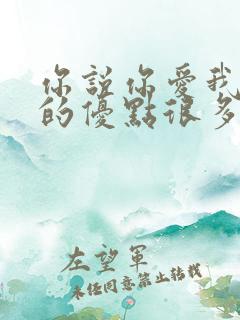 你說你愛我
的優點很多
左望軍
未經同意禁止轉載